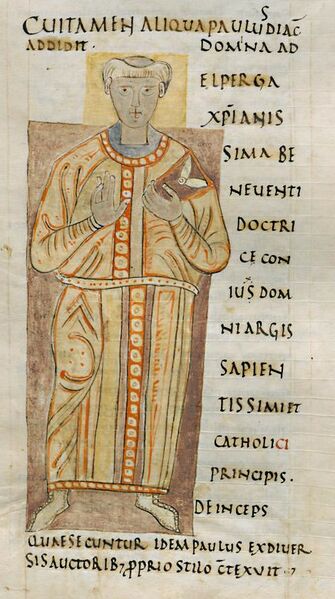 CUI TAMEN ALIQUA PAULUS DIAC̄
ADDIDIT. DOMNA AD
ELPERGA
XP̄IANIS
SIMA BE
NEUENTI
DOCTRI
CE CON
IUS DOM
NI ARGIS
SAPIEN
TISSIMI ET
CATHOLICI
PRINCIPIS.
DEINCEPS
QUAE SECUNTUR IDEM PAULUS EX DIUER
SIS AUCTORIB; PPRIO STILO C̄TEXUIT